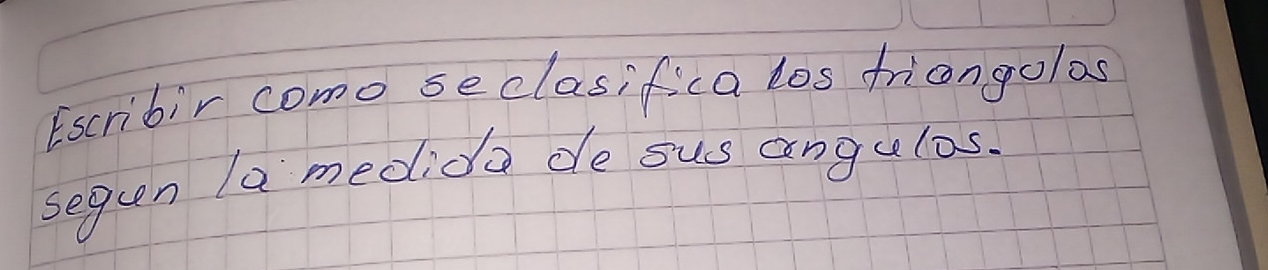 Escribir como se clasifica los triangulos
segun la medida de sus angulos.